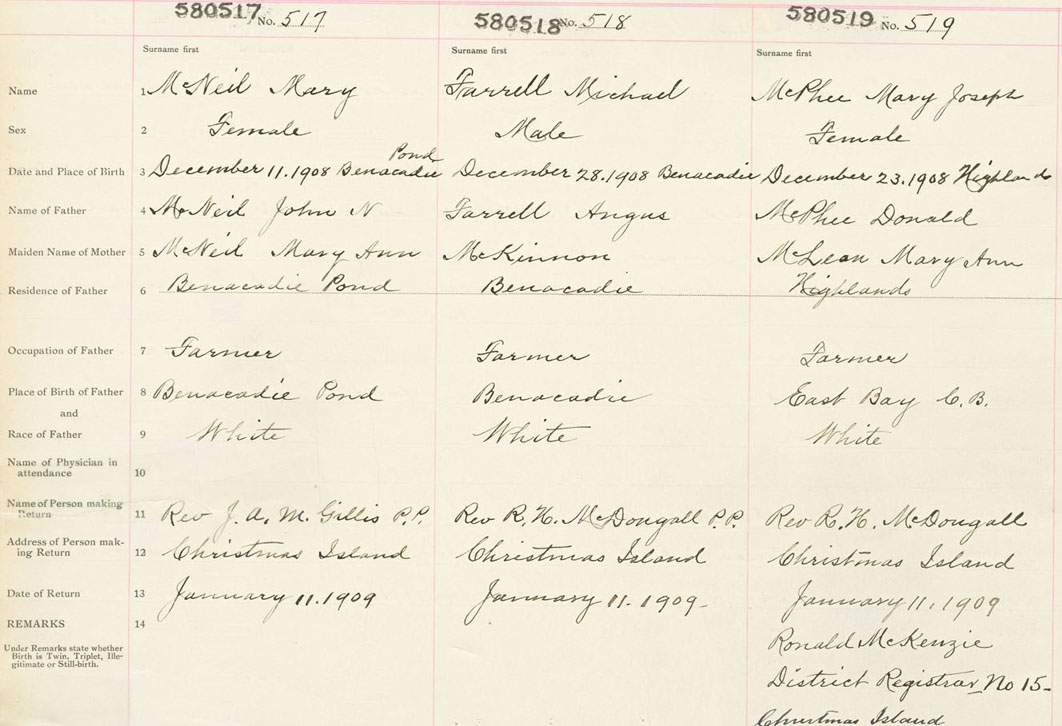 580517 No. 517
580518 No. 518
580519 No. 519
Surname first
Surname first
Surname first
Name 1 McNeil Mary
Farrell Michael
McPhee Mary Joseph
Sex 2 Female
Male
Female
Date and Place of Birth 3 December 11. 1908 Benacadie Pond
December 28. 1908 Benacadie
December 23. 1908 Highlands
Name of Father 4 McNeil John N
Farrell Angus
McPhee Donald
Maiden Name of Mother 5 McNeil Mary Ann
McKinnon
McLean Mary Ann
Residence of Father 6 Benacadie Pond
Benacadie
Highlands
Occupation of Father 7 Farmer
Farmer
Farmer
Place of Birth of Father 8 Benacadie Pond
Benacadie
East Bay C.B.
and
Race of Father 9 White
White
White
Name of Physician in
attendance 10
Name of Person making
Return 11 Rev J. A. M. Gillis P.P.
Rev R. H. McDougall P.P.
Rev R. H. McDougall
Address of Person mak-
ing Return 12 Christmas Island
Christmas Island
Christmas Island
Date of Return 13 January 11. 1909
January 11. 1909-
January 11, 1909
REMARKS 14
Under Remarks state whether
Birth is Twin, Triplet, Ille-
gitimate or Still-birth.
Ronald McKenzie
District Registrar No 15-
Christmas Island